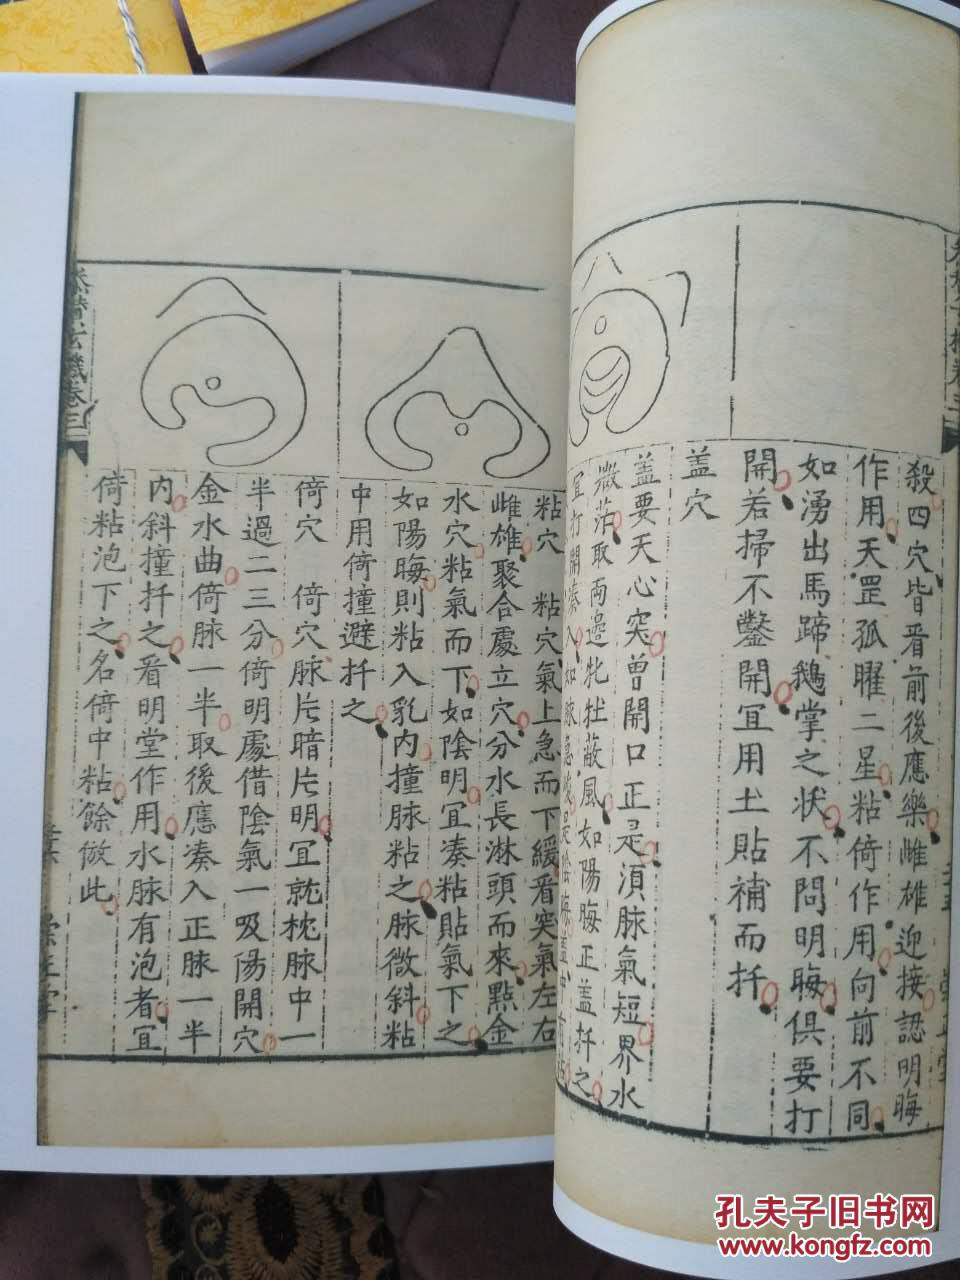 殺四穴皆看前後應樂雌雄迎接認明晦
作用天罡孤曜二星粘倚作用向前不同
如湧出馬蹄鵝掌之状不問明晦俱要打
開若掃不鑿開宜用土貼補而扦
盖穴
盖要天心突曽開口正是湏脉氣短界水
微茫取兩邉牝牡蔽風如陽晦正盖扦之
宜打開湊入如
粘穴 粘穴氣上急而下緩看突氣左右
雌雄聚合處立穴分水長淋頭而來㸃金
水穴粘氣而下如陰明宜湊粘貼氣下之
如陽晦則粘入乳内撞脉粘之脉微斜粘
中用倚撞避扦之
倚穴 倚穴脉片暗片明宜就枕脉中一
半過二三分倚明處借陰氣一吸陽開穴
金水曲倚脉一半取後應湊入正脉一半
内斜撞扦之看明堂作用水脉有泡者宜
倚粘泡下之名倚中粘餘倣此
孔夫子旧书网
www.kongfz.com